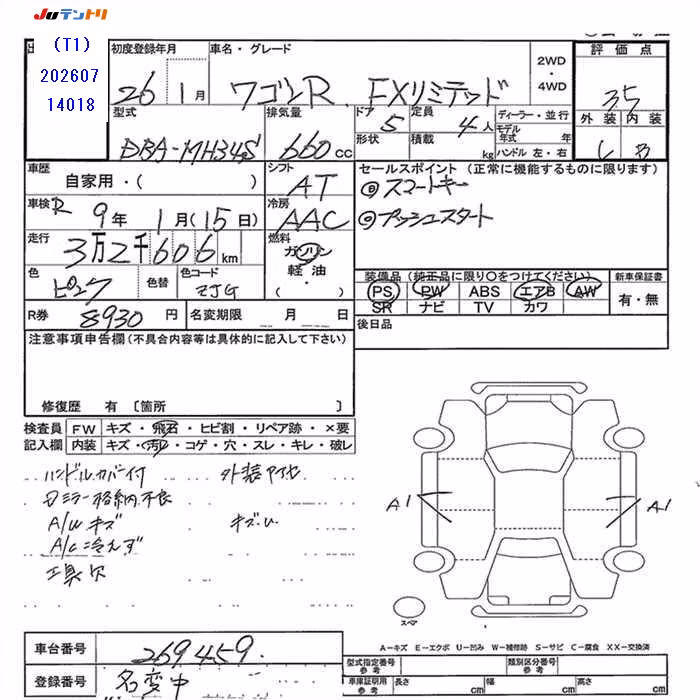 Juテントリ
(T1)
202607
14018
初度登録年月
26 1月
車名・グレード
ワゴンR FXリミテッド
2WD
・
4WD
評価点
3.5
外装 内装
C B
型式
DBA-MH34S
排気量
660cc
ドア
5
定員
4人
形状
積載
kg
ディーラー・並行
モデル年式 年
ハンドル 左・右
車歴
自家用・( )
シフト
AT
セールスポイント (正常に機能するものに限ります)
◎スマートキー
◎プッシュスタート
車検 R 9年 1月(15日)
冷房
AAC
走行
3万2千606km
燃料
ガソリン
軽油
( )
色
ピンク
色替
色コード
ZJG
装備品 (純正品に限り〇をつけてください)
PS PW ABS エアB AW
SR ナビ TV カワ
新車保証書
有・無
R券 8930円
名変期限 月 日
後日品
注意事項申告欄(不具合内容等は具体的に記入して下さい)
修復歴 有 〔箇所 〕
検査員
記入欄
FW キズ・飛石・ヒビ割・リペア跡・×要
内装 キズ・汚レ・コゲ・穴・スレ・キレ・破レ
ハンドルカバー付 外装アセ
Dミラー格納不良
A/Wキズ キズU
A/C冷えず
工具欠
A1
A1
スペア
A-キズ E-エクボ U-凹み W-補修跡 S-サビ C-腐食 XX-交換済
車台番号 269459
登録番号 名変中
型式指定番号
参考
類別区分番号
参考
車庫証明用
参考
長さ cm 幅 cm 高さ cm